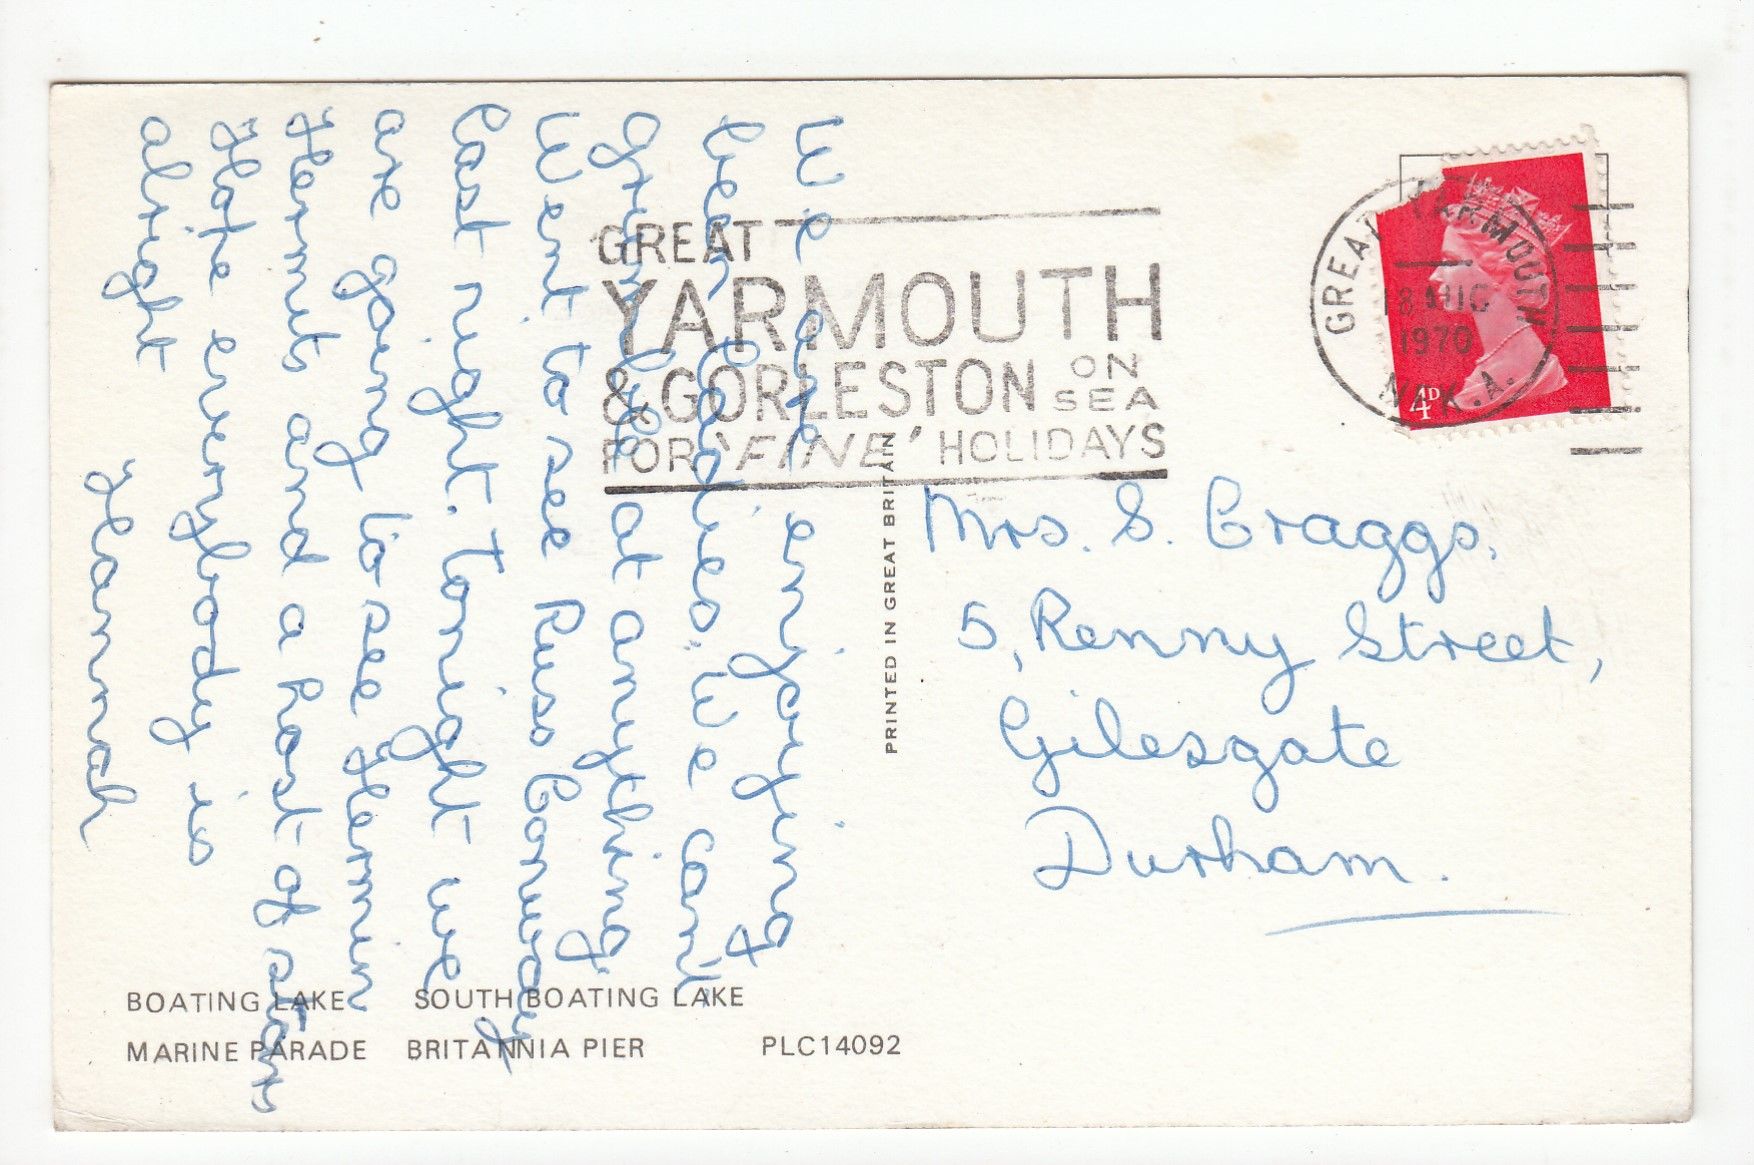 We are enjoying
been ladies. We can't
grumble at anything.
Went to see Russ Conway
last night. Tonight we
are going to see Hermin
Hermits and a host of stars
Hope everybody is
alright
Hannah
GREAT
YARMOUTH
& GORLESTON ON SEA
FOR 'FINE' HOLIDAYS
GREAT YARMOUTH
18 AUG
1970
NK.A.
4D
PRINTED IN GREAT BRITAIN
Mrs. S. Craggs.
5, Renny Street,
Gilesgate
Durham.
BOATING LAKE SOUTH BOATING LAKE
MARINE PARADE BRITANNIA PIER PLC14092